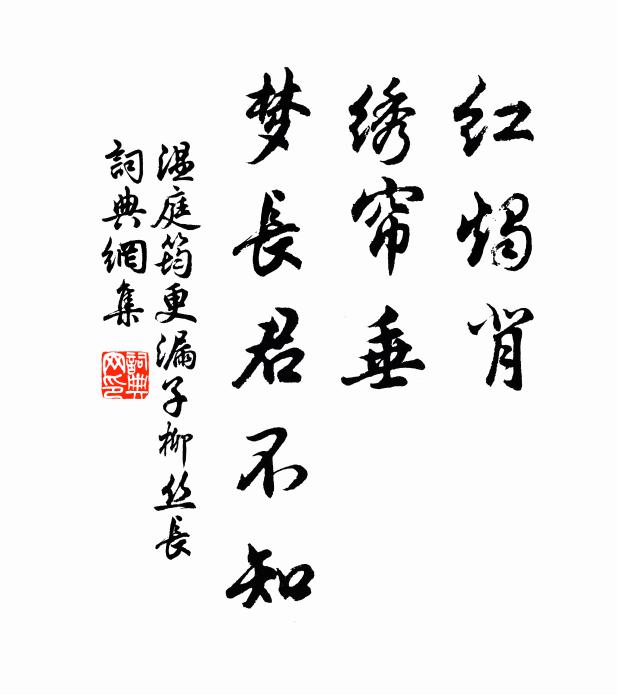 红烛背
绣帘垂
梦長君不知
温庭筠更漏子柳丝長
詞典網集
詞典网印